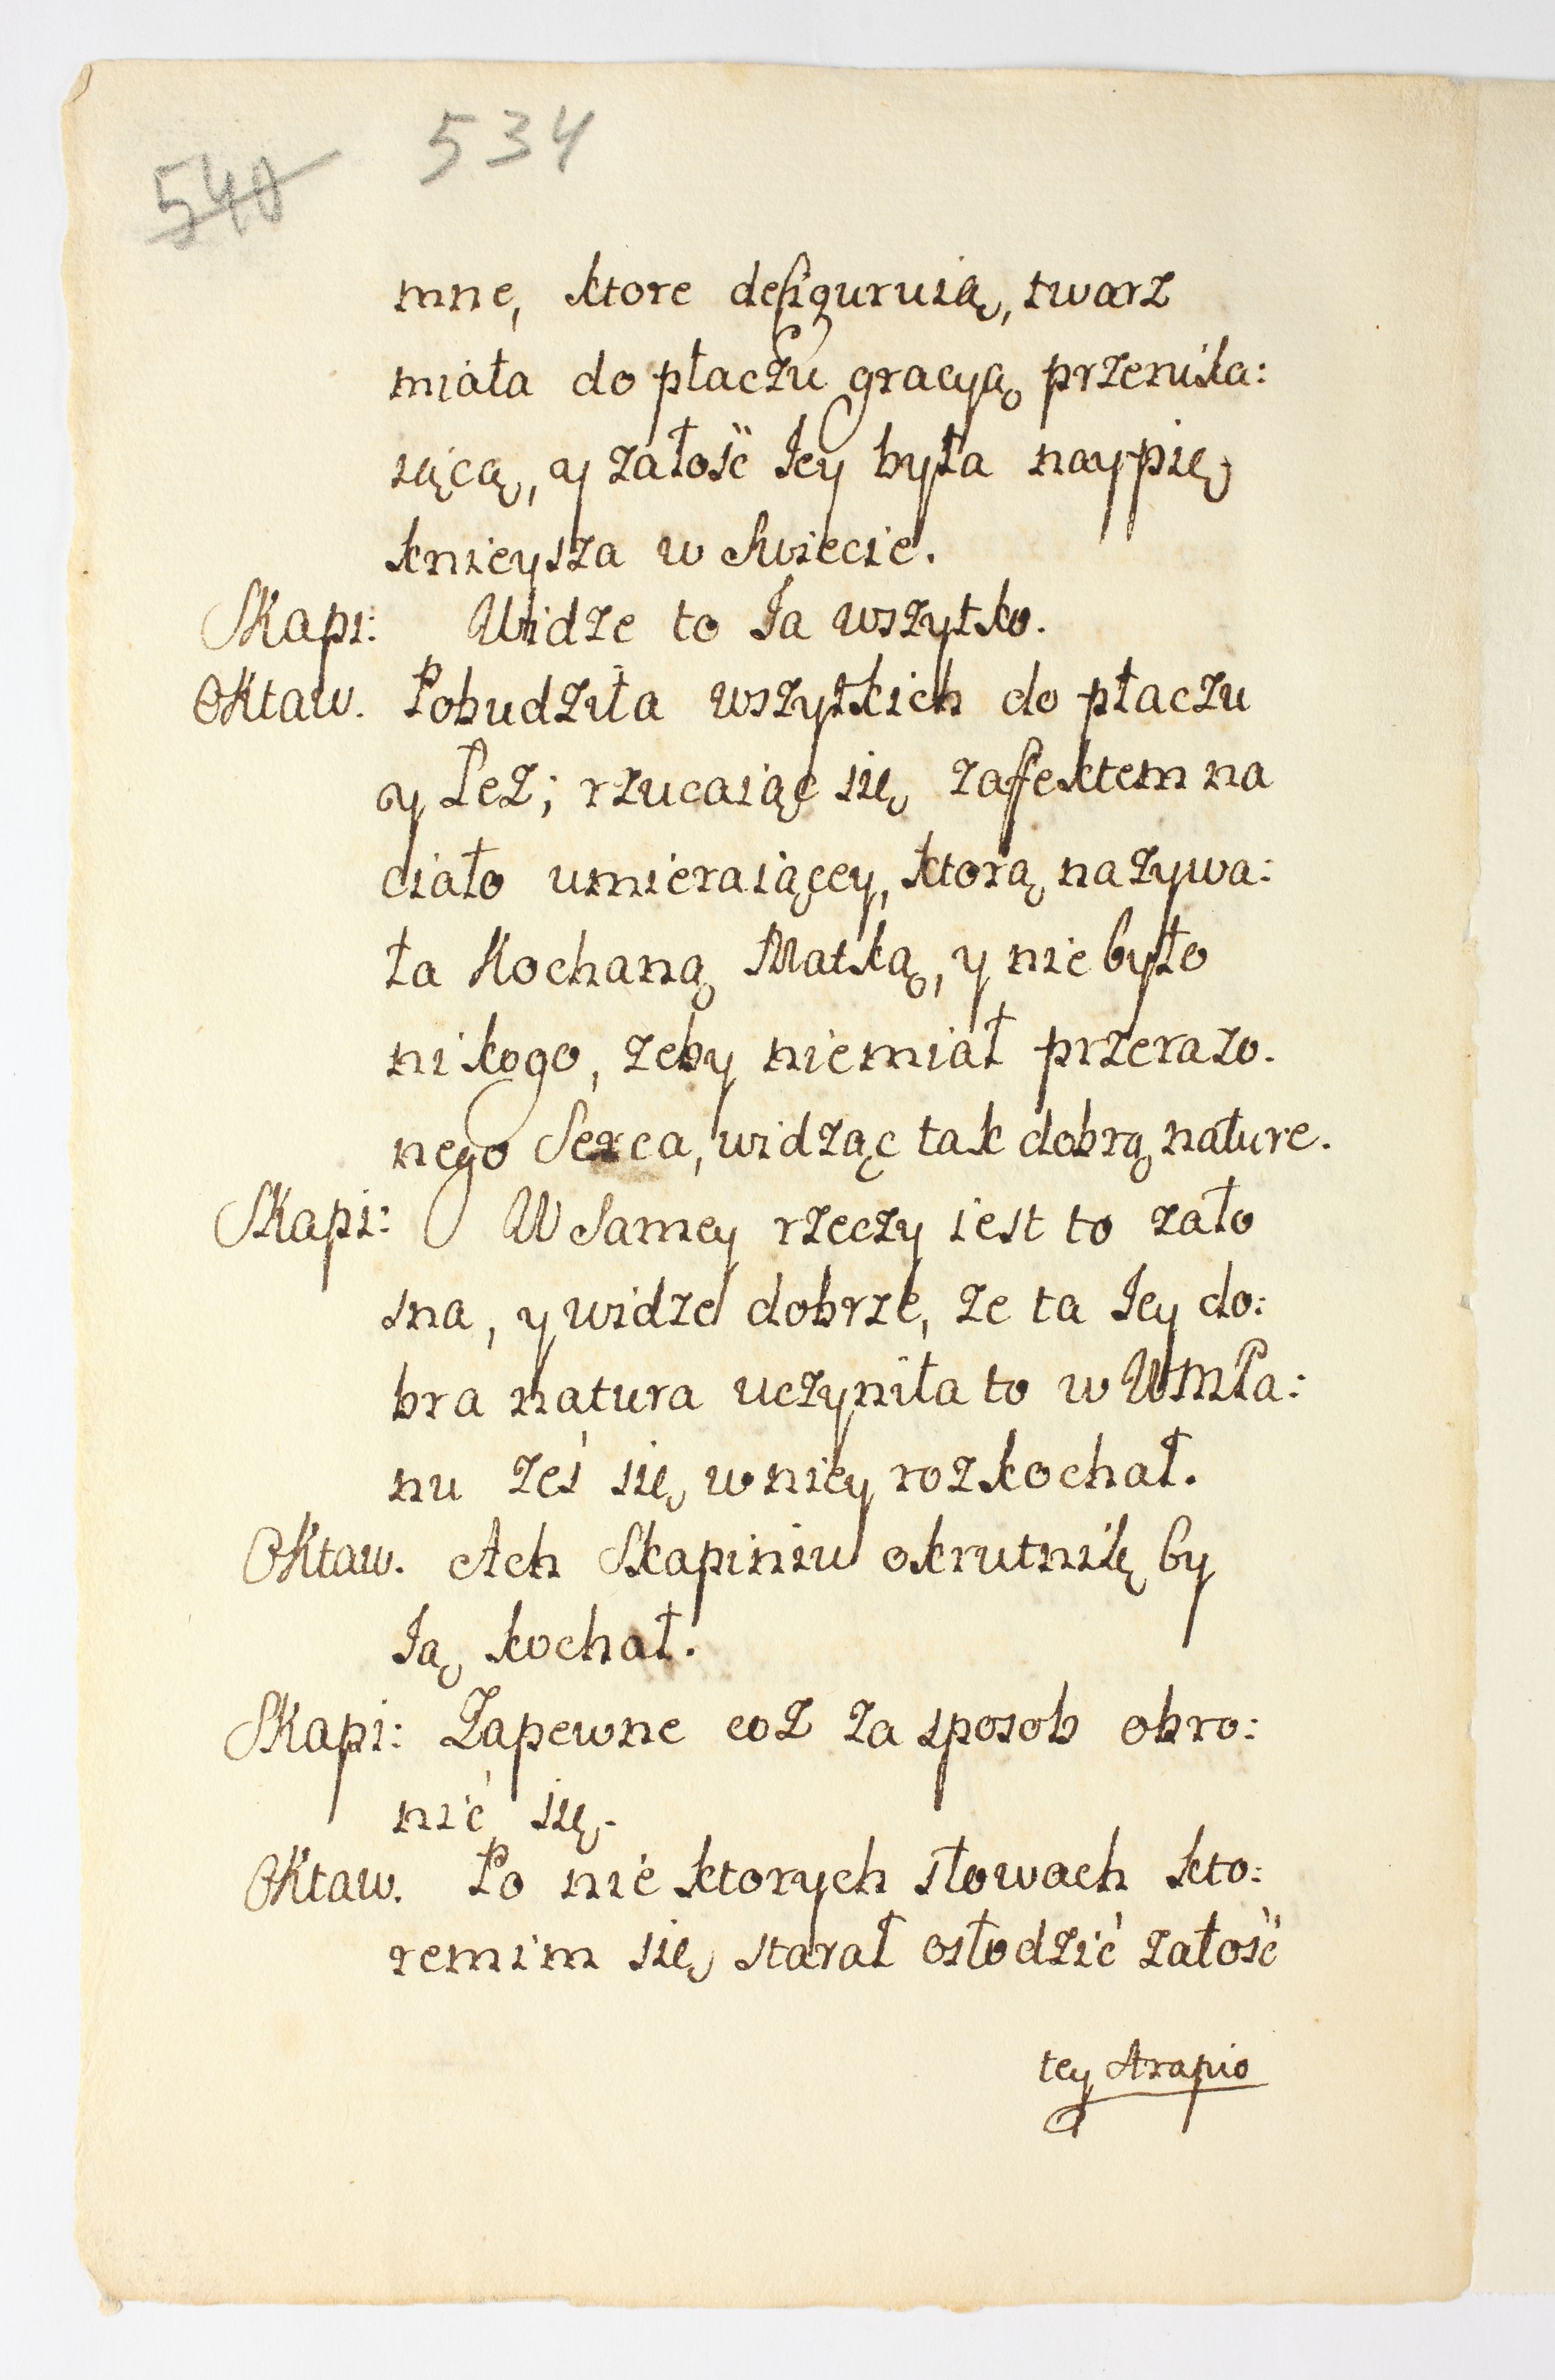 540 534
mne, ktore defigurują, twarz
miała do płaczu gracyą przenika:
iącą, y załość Iey była naypię
knieysza w Swiecie.
Skapi: Widze to Ia wszytko.
Oktaw. Pobudziła wszytkich do płaczu
y Łez; rzucaiąc się zaffektem na
ciało umieraiącey, ktorą nazywa:
ła Kochaną Matką, y nie było
nikogo, zeby niemiał przerazo.
nego Serca, widząc tak dobrą nature.
Skapi: W Samey rzeczy iest to zało
sna, y widze dobrze, ze ta Iey do:
bra natura uczyniła to w WMPa:
nu żeś się w niey rozkochał.
Oktaw. Ach Skapiniu okrutnię by
Ią kochał.
Skapi: Zapewne coz za sposob obro:
nić się.
Oktaw. Po nie ktorych słowach kto:
remim się starał osłodzić załość
tey Arapio